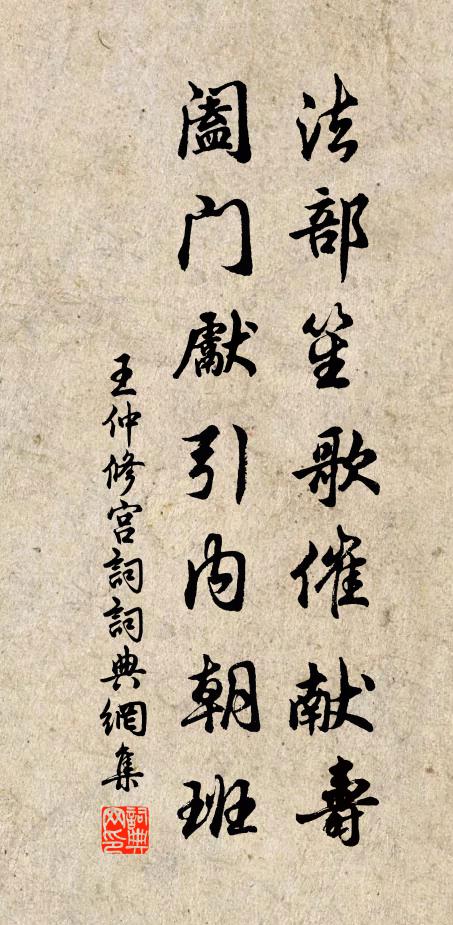 法部笙歌催献壽
阖门獻引内朝班
王仲修宫詞詞典網集
詞典網印